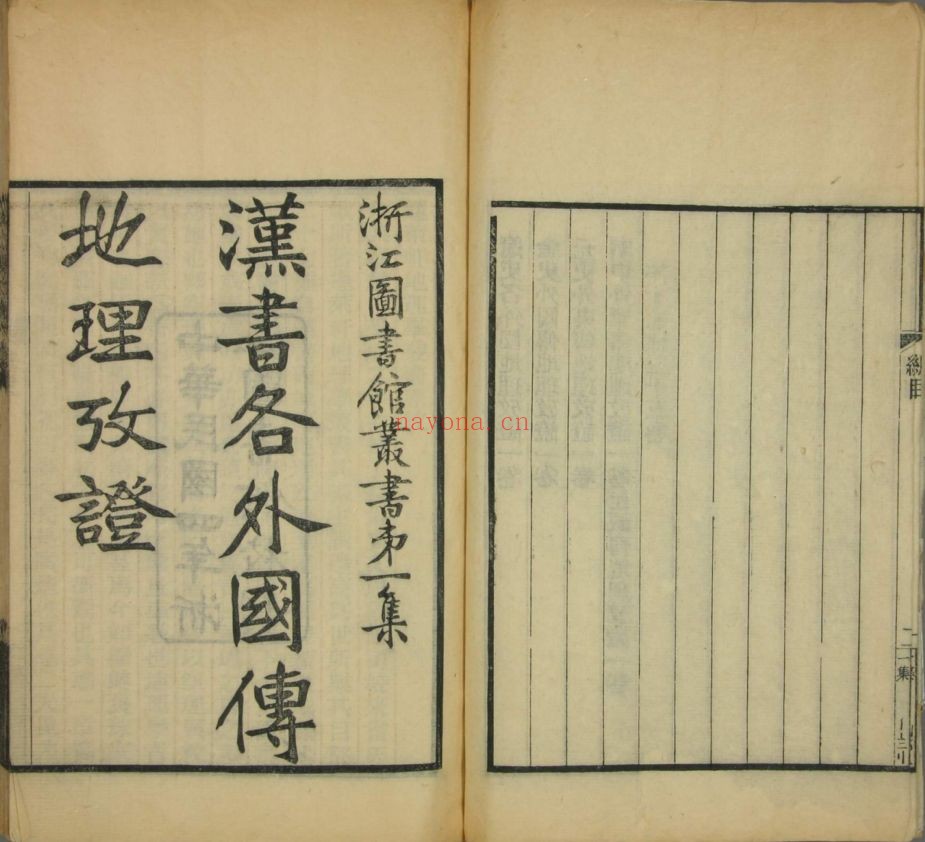 浙江圖書館叢書弟一集
漢書各外國傳
地理攷證
nayona.cn
總目
一集